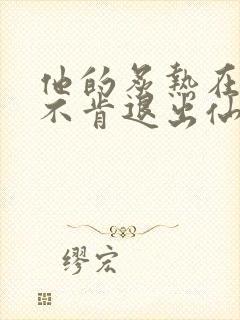 他的炙热在
不肯退出仙
缪宏